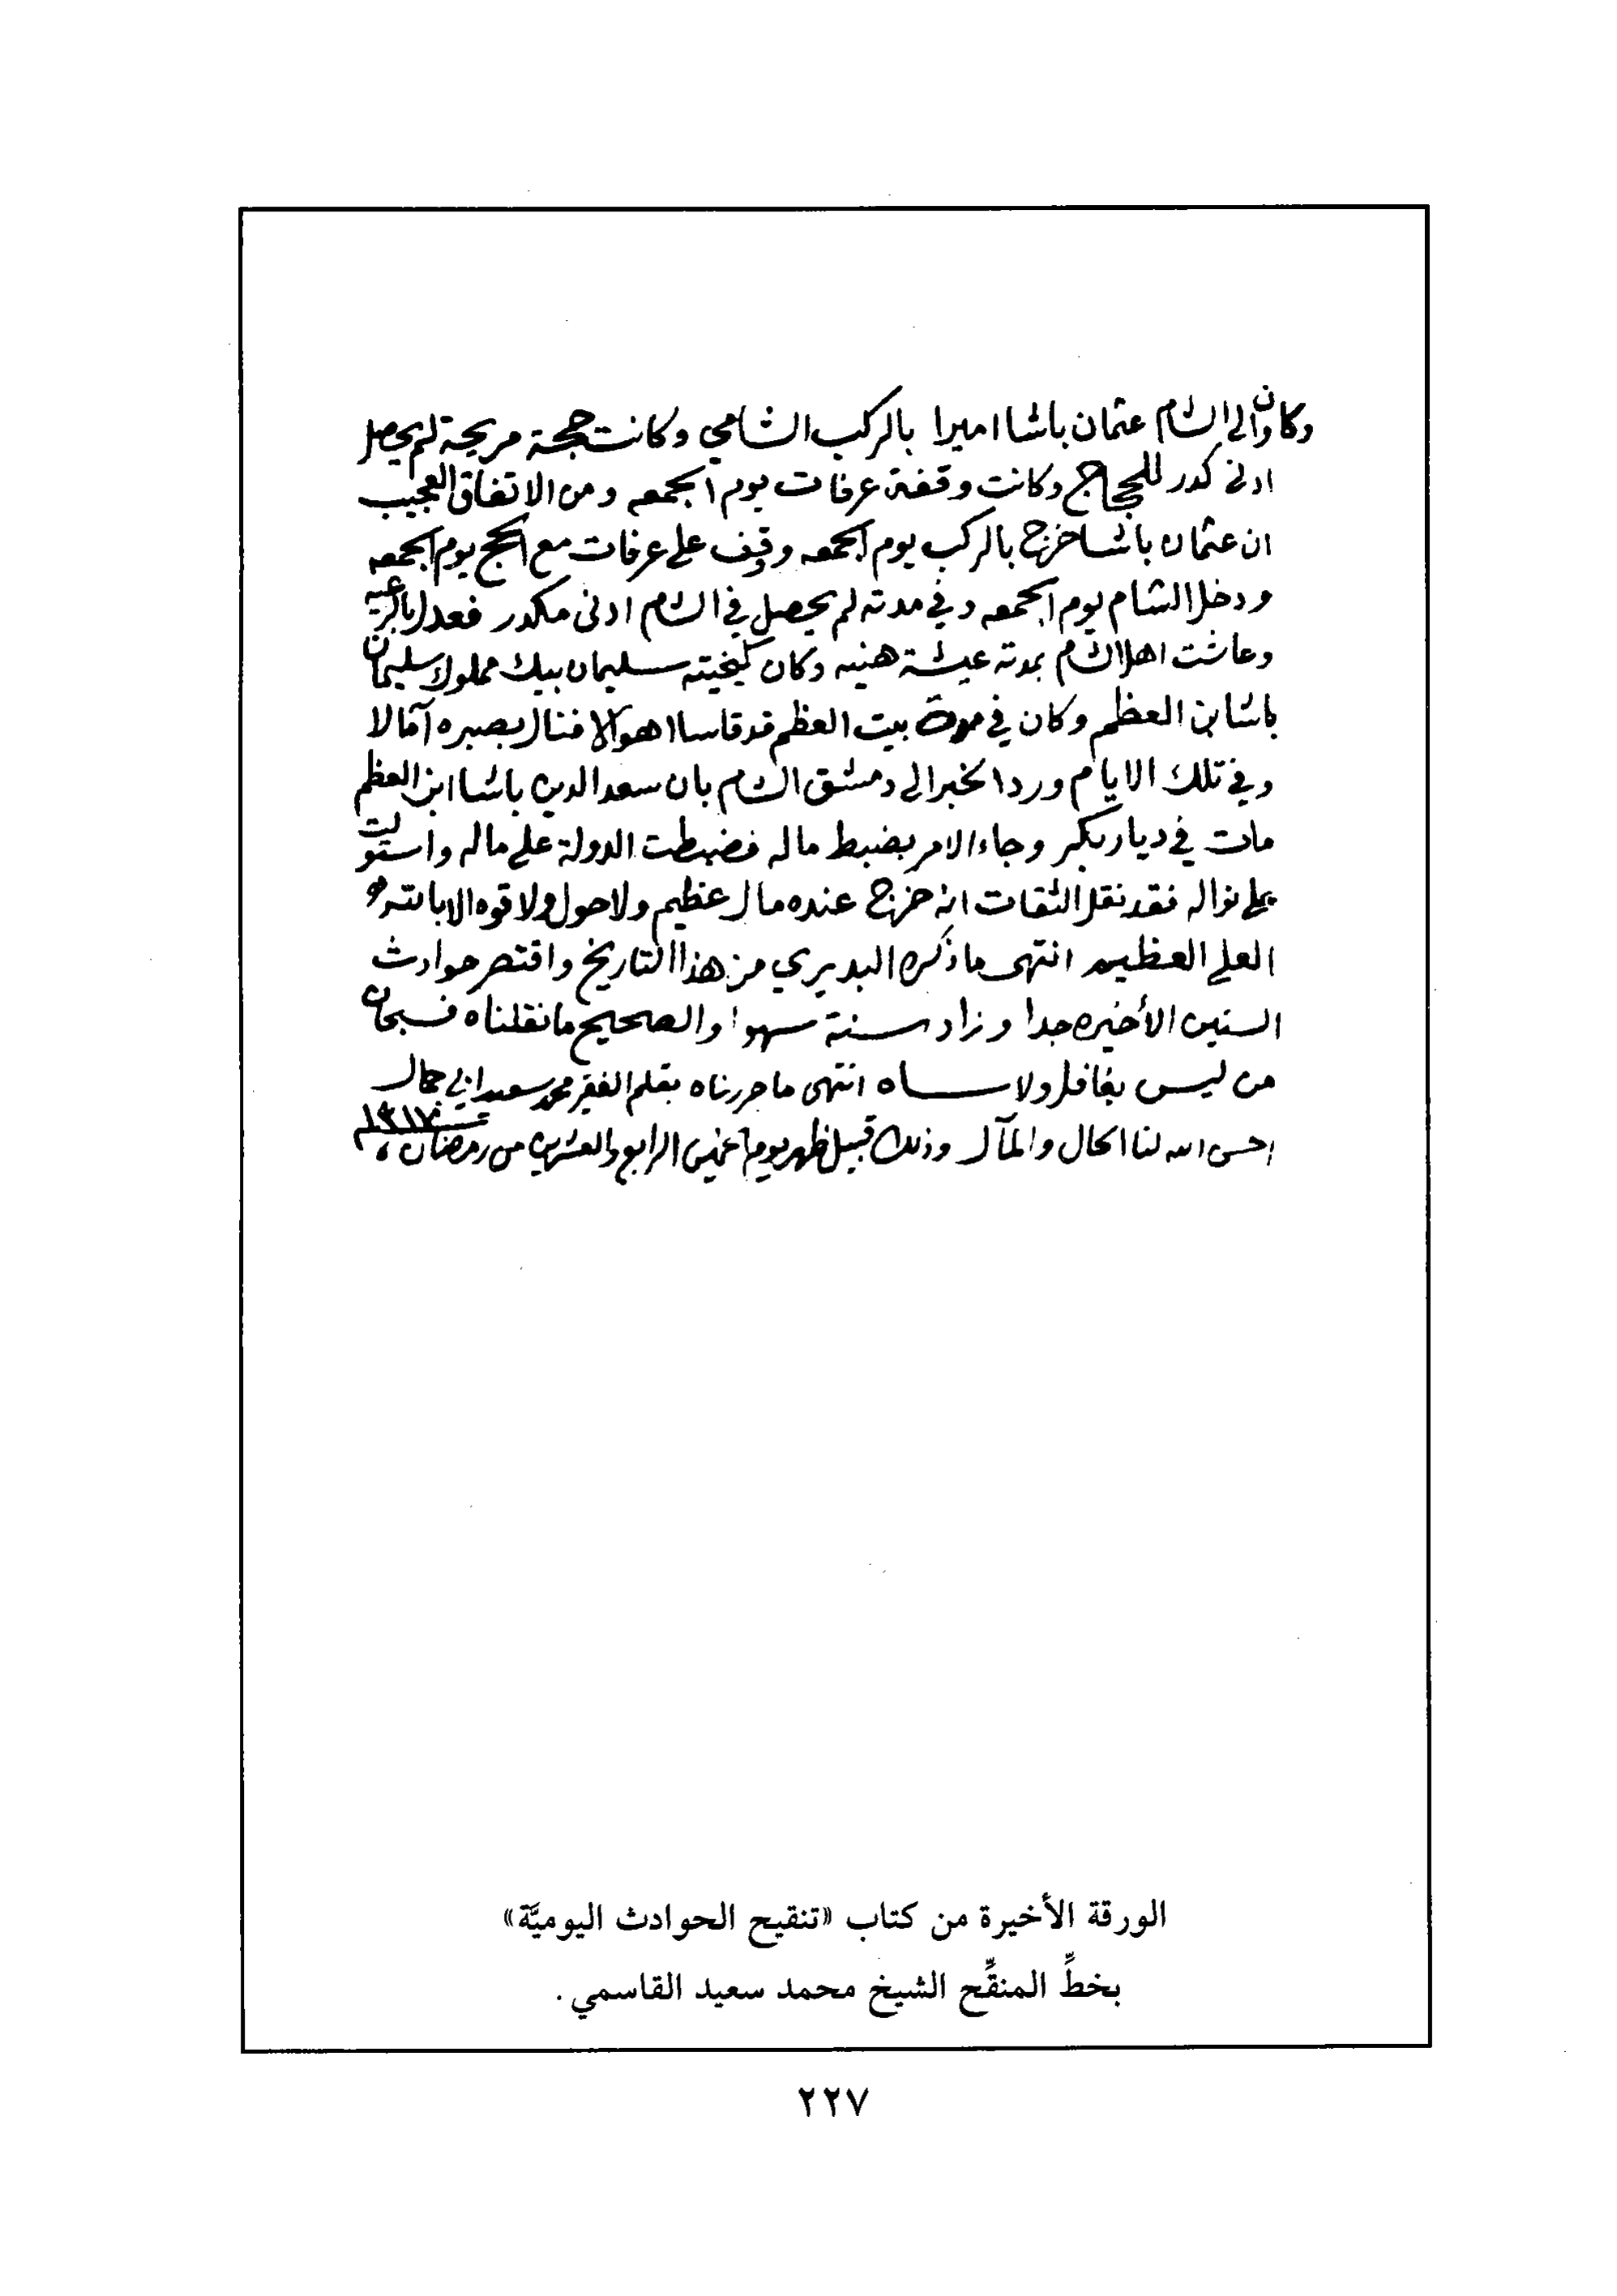 وكان والي الشام عثمان باشا اميرا بالركب الشامي وكانت حجة مريحة لم يحصل
ادنى كدر للحجاج وكانت وقفة عرفات يوم الجمعه ومن الاتفاق العجيب
ان عثمان باشا خرج بالركب يوم الجمعه ووقف على عرفات مع الحج يوم الجمعه
ودخل الشام يوم الجمعه وفي مدته لم يحصل في الشام ادنى مكدر فعدل بالرعيه
وعاشت اهل الشام بمدته عيشة هنيه وكان كيخيته سليمان بيك مملوك سليمان
باشا بن العظم وكان في بيت العظم قد قاسا اهوالا فنال بصبره آمالا
وفي تلك الايام ورد الخبر الى دمشق الشام بان سعد الدين باشا ابن العظم
مات في ديار بكر وجاء الامر بضبط ماله فضبطت الدولة على ماله واستولت
على نواله فقد نقل الثقات انه خرج عنده مال عظيم ولا حول ولا قوه الا بالله
العلي العظيم انتهى ما ذكره البديري من هذا التاريخ واقتصر حوادث
السنين الأخيره جدا وزاد سنة سهوا والصحيح ما نقلناه فسبحان
من ليس بغافل ولا ساه انتهى ما حررناه بقلم الفقير محمد سعيد ابي جمال
احسن الله لنا الحال والمآل وذلك قبيل ظهر يوم الخميس الرابع والعشرين من رمضان سنة ١٣١٧
الورقة الأخيرة من كتاب «تنقيح الحوادث اليوميَّة»
بخطِّ المنقِّح الشيخ محمد سعيد القاسمي .
٢٢٧